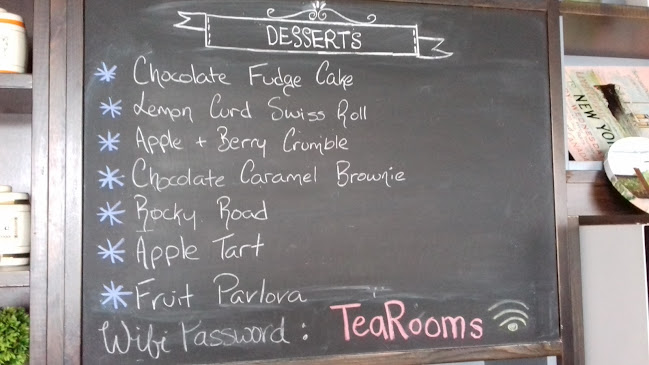 DESSERTS
* Chocolate Fudge Cake
* Lemon Curd Swiss Roll
* Apple + Berry Crumble
* Chocolate Caramel Brownie
* Rocky Road
* Apple Tart
* Fruit Pavlova
Wifi Password : TeaRooms
NEW YOR